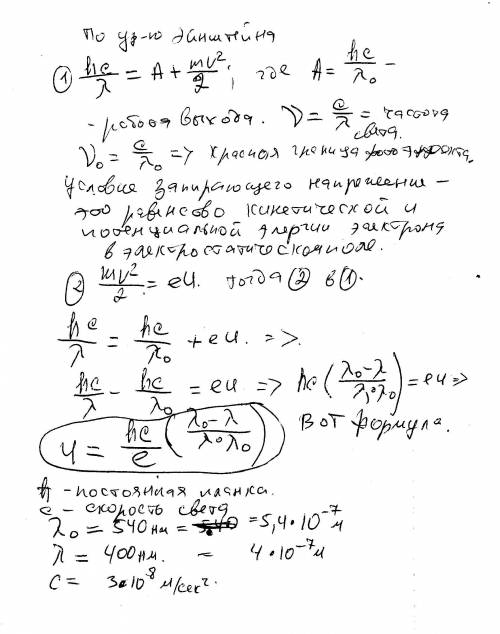 По ур-ю Эйнштейна
① hc/λ = A + mv²/2; где A = hc/λ₀ -
- работа выхода. ν = c/λ = частота света.
ν₀ = c/λ₀ => красная граница фотоэффекта.
Условие запирающего напряжения -
это равенство кинетической и
потенциальной энергии электрона
в электростатическом поле.
② mv²/2 = eU. тогда ② в ①.
hc/λ = hc/λ₀ + eU. =>.
hc/λ - hc/λ₀ = eU => hc(λ₀-λ/λ·λ₀) = eU =>
U = hc/e (λ₀-λ/λ·λ₀) Вот формула.
h - постоянная планка.
c - скорость света
λ₀ = 540 нм = = 5,4·10⁻⁷ м
λ = 400 нм. = 4·10⁻⁷ м
c = 3·10⁻⁸ м/сек².